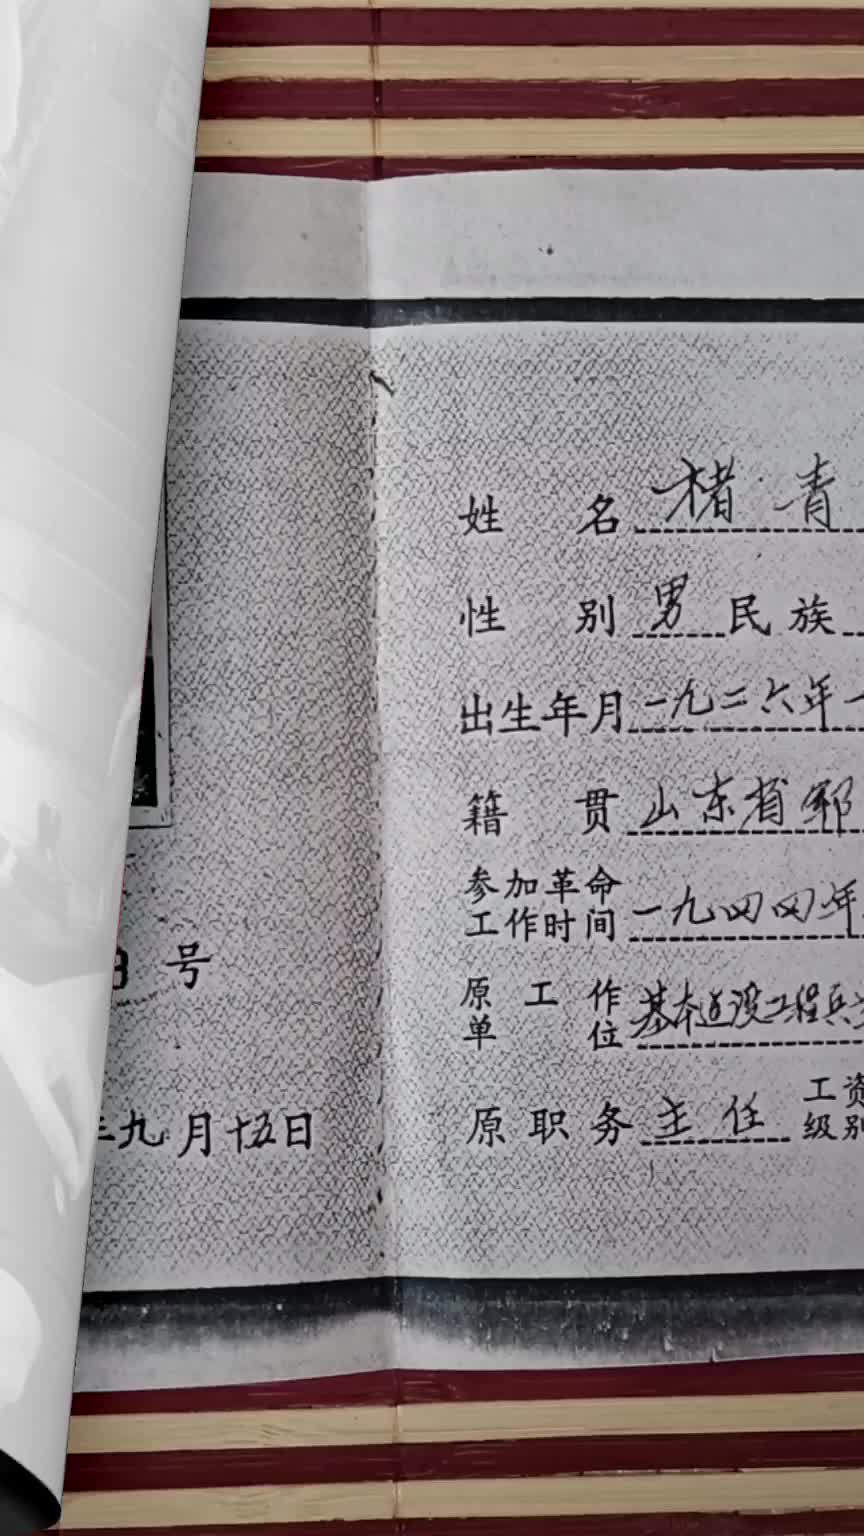 号
九月十五日
姓 名 褚 青
性 别 男 民 族
出生年月 一九二六年一
籍 贯 山东省郓
参加革命
工作时间 一九四四年
原 工 作
单 位 基本建设工程兵
原 职 务 主 任 工资
级别